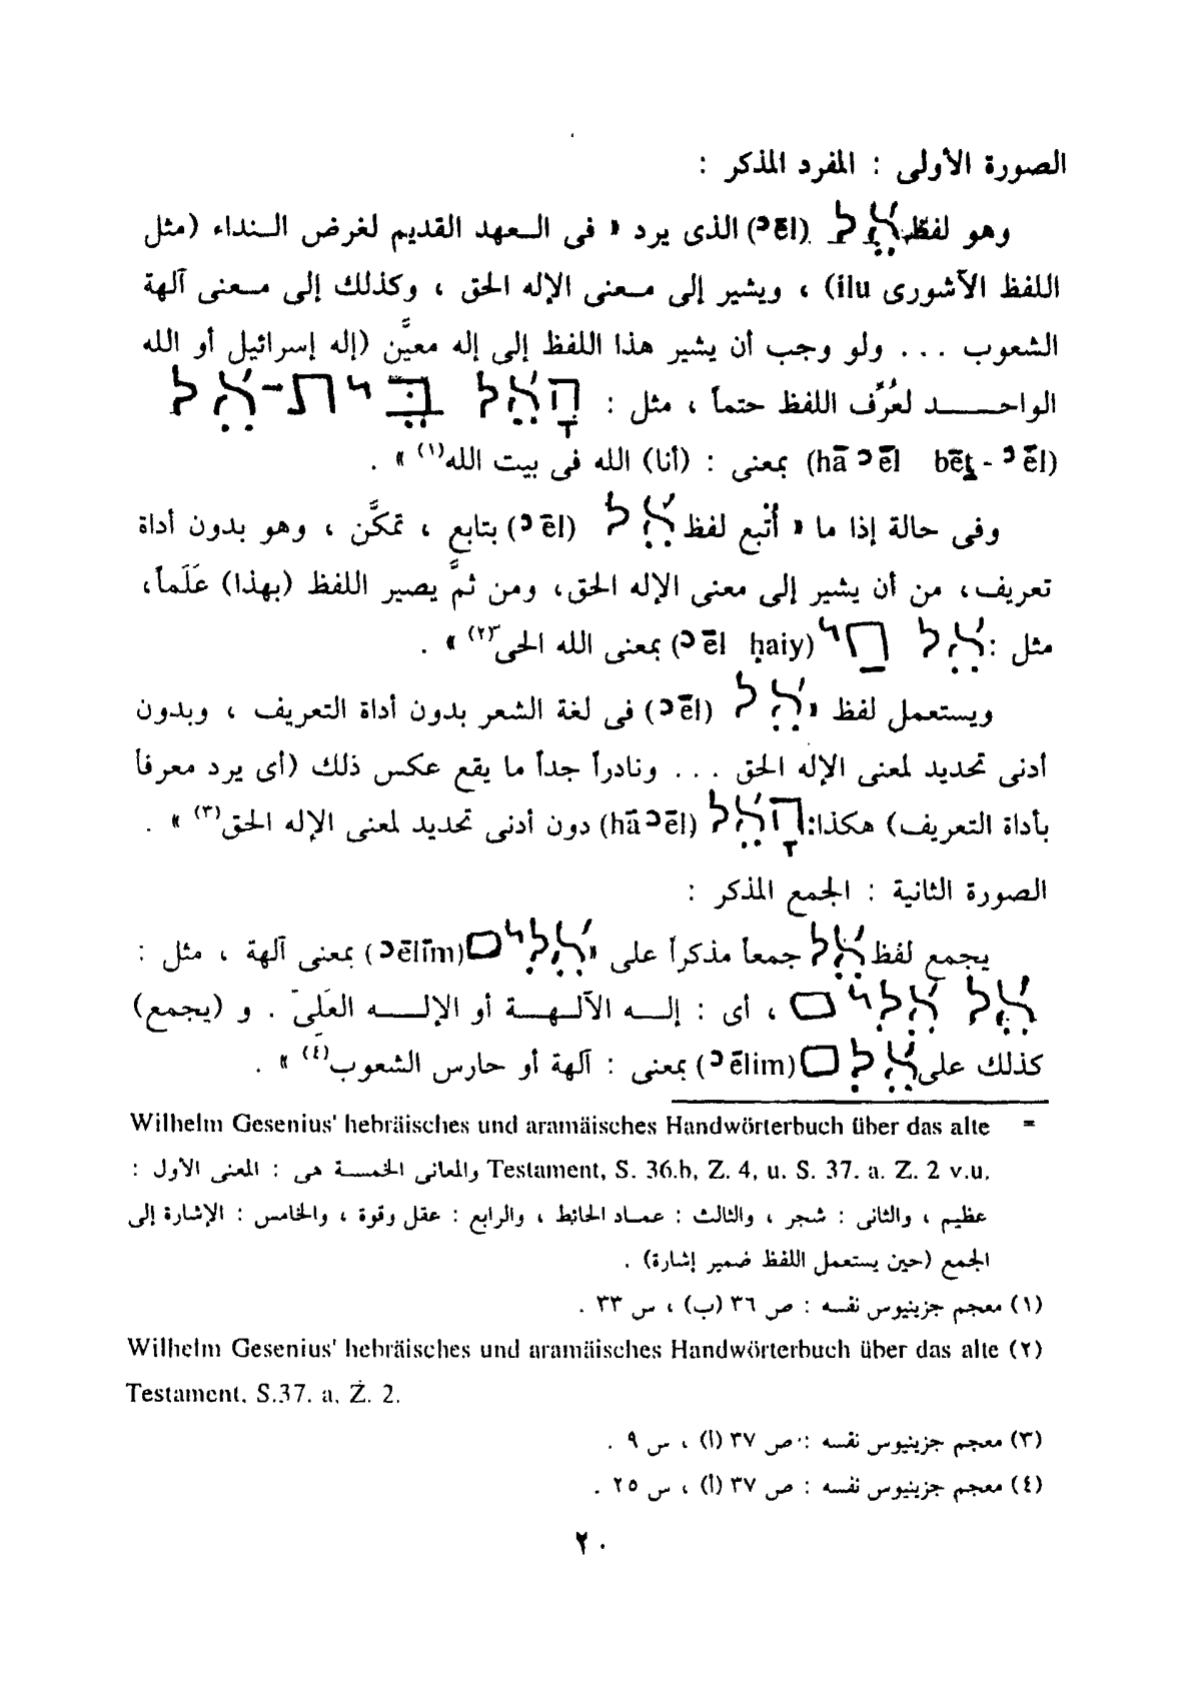 الصورة الأولى : المفرد المذكر :
وهو لفظ אֵל (ɔēl) الذى يرد « فى العهد القديم لغرض النداء (مثل
اللفظ الآشورى ilu) ، ويشير إلى معنى الإله الحق ، وكذلك إلى معنى آلهة
الشعوب ... ولو وجب أن يشير هذا اللفظ إلى إله معيَّن (إله إسرائيل أو الله
الواحد لعُرِّف اللفظ حتماً ، مثل : הָאֵל בֵּית-אֵל
(hā ɔēl bēṯ - ɔēl) بمعنى : (أنا) الله فى بيت الله(١) » .
وفى حالة إذا ما « أُتْبع لفظ אֵל (ɔēl) بتابع ، تمكَّن ، وهو بدون أداة
تعريف، من أن يشير إلى معنى الإله الحق، ومن ثمَّ يصير اللفظ (بهذا) عَلَماً،
مثل : אֵל חַי (ɔēl ḥaiy) بمعنى الله الحى(٢) » .
ويستعمل لفظ « אֵל (ɔēl) فى لغة الشعر بدون أداة التعريف ، وبدون
أدنى تحديد لمعنى الإله الحق ... ونادراً جداً ما يقع عكس ذلك (أى يرد معرفاً
بأداة التعريف) هكذا: הָאֵל (hāɔēl) دون أدنى تحديد لمعنى الإله الحق(٣) » .
الصورة الثانية : الجمع المذكر :
يجمع لفظ אֵל جمعاً مذكراً على « אֵלִים (ɔēlīm) بمعنى آلهة ، مثل :
אֵל אֵלִים ، أى : إله الآلهة أو الإله العَلىّ . و (يجمع)
كذلك على אֵלִם (ɔēlim) بمعنى : آلهة أو حارس الشعوب(٤) » .
= Wilhelm Gesenius' hebräisches und aramäisches Handwörterbuch über das alte
Testament, S. 36.b, Z. 4, u. S. 37. a. Z. 2 v.u. والمعانى الخمسة هى : المعنى الأول :
عظيم ، والثانى : شجر ، والثالث : عماد الحائط ، والرابع : عقل وقوة ، والخامس : الإشارة إلى
الجمع (حين يستعمل اللفظ ضمير إشارة) .
(١) معجم جزينيوس نفسه : ص ٣٦ (ب) ، س ٣٣ .
(٢) Wilhelm Gesenius' hebräisches und aramäisches Handwörterbuch über das alte
Testament. S.37. a, Z. 2.
(٣) معجم جزينيوس نفسه : ص ٣٧ (أ) ، س ٩ .
(٤) معجم جزينيوس نفسه : ص ٣٧ (أ) ، س ٢٥ .
٢٠